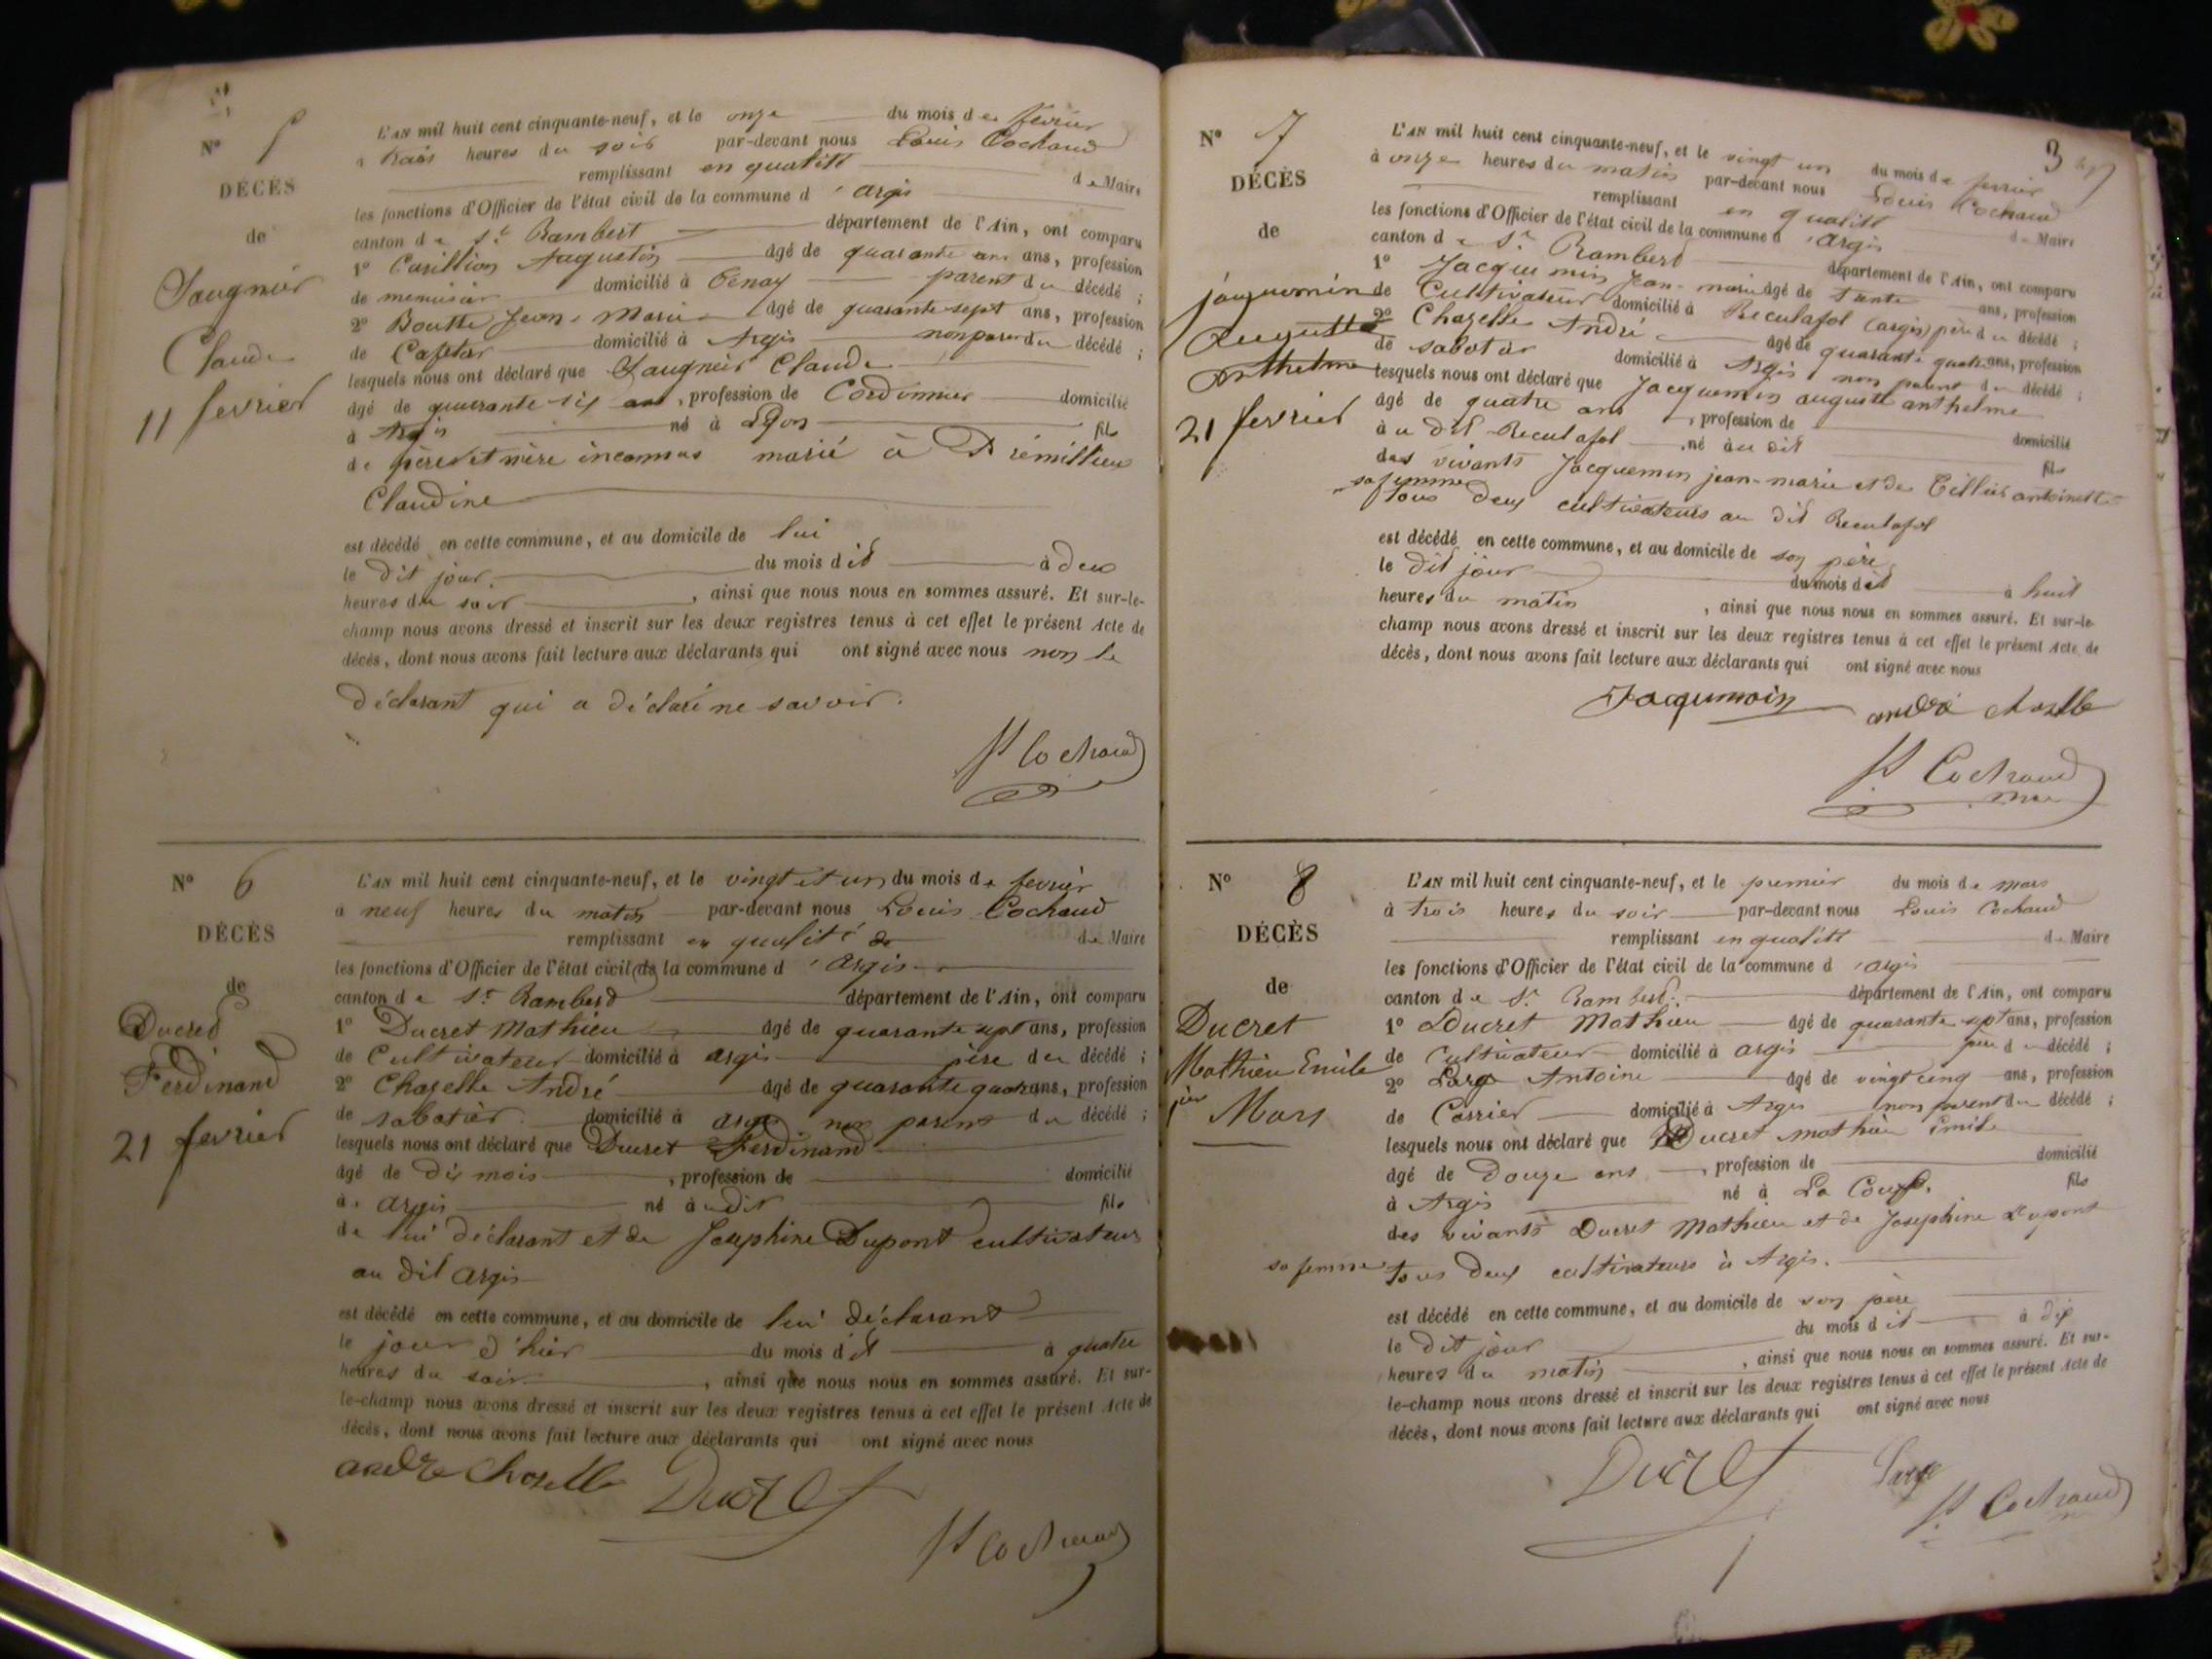 N° 5
DÉCÈS
de
Saugnier
Claude
11 fevrier
L'AN mil huit cent cinquante-neuf, et le onze du mois de fevrier
à trois heures du soir par-devant nous Louis Cochaud
remplissant en qualité de Maire
les fonctions d'Officier de l'état civil de la commune d'argis
canton de St. Rambert département de l'Ain, ont comparu
1° Carillion Augustin âgé de quarante un ans, profession
de menuisier domicilié à Tenay parent du décédé ;
2° Boutte Jean-Marie âgé de quarante-sept ans, profession
de Cafetier domicilié à Argis non parent du décédé ;
lesquels nous ont déclaré que Saugnier Claude
âgé de quarante six ans, profession de Cordonnier domicilié
à Argis né à Lyon fils
de père et mère inconnus marié à Drémillieu
Claudine
est décédé en cette commune, et au domicile de lui
le dit jour du mois dit à deux
heures du soir, ainsi que nous nous en sommes assuré. Et sur-le-
champ nous avons dressé et inscrit sur les deux registres tenus à cet effet le présent Acte de
décès, dont nous avons fait lecture aux déclarants qui ont signé avec nous non le
déclarant qui a déclaré ne savoir.
Ls Cochaud
N° 6
DÉCÈS
de
Ducret
Ferdinand
21 fevrier
L'AN mil huit cent cinquante-neuf, et le vingt et un du mois de fevrier
à neuf heures du matin par-devant nous Louis Cochaud
remplissant en qualité de de Maire
les fonctions d'Officier de l'état civil de la commune d'argis
canton de St. Rambert département de l'Ain, ont comparu
1° Ducret Mathieu âgé de quarante sept ans, profession
de Cultivateur domicilié à argis père du décédé ;
2° Chazelle André âgé de quarante quatre ans, profession
de sabotier domicilié à argis non parent du décédé ;
lesquels nous ont déclaré que Ducret Ferdinand
âgé de dix mois, profession de domicilié
à argis né au dit fils
de lui déclarant et de Josephine Dupont cultivateurs
au dit argis
est décédé en cette commune, et au domicile de lui déclarant
le jour d'hier du mois dit à quatre
heures du soir, ainsi que nous nous en sommes assuré. Et sur-
le-champ nous avons dressé et inscrit sur les deux registres tenus à cet effet le présent Acte de
décès, dont nous avons fait lecture aux déclarants qui ont signé avec nous
andre Chazelle Ducret
Ls Cochaud
3
N° 7
DÉCÈS
de
jaquemin
Auguste
Anthelme
21 fevrier
L'AN mil huit cent cinquante-neuf, et le vingt un du mois de fevrier
à onze heures du matin par-devant nous Louis Cochaud
remplissant en qualité de Maire
les fonctions d'Officier de l'état civil de la commune d'argis
canton de St. Rambert département de l'Ain, ont comparu
1° Jacquemin Jean-marie âgé de trente ans, profession
de Cultivateur domicilié à Reculafol (argis) père du décédé ;
2° Chazelle André âgé de quarante quatre ans, profession
de sabotier domicilié à Argis non parent du décédé ;
lesquels nous ont déclaré que Jacquemin auguste anthelme
âgé de quatre ans, profession de domicilié
au dit Reculafol, né au dit fils
des vivants Jacquemin jean-marie et de Tillier antoinette
sa femme tous deux cultivateurs au dit Reculafol
est décédé en cette commune, et au domicile de son père
le dit jour du mois dit à huit
heures du matin, ainsi que nous nous en sommes assuré. Et sur-le-
champ nous avons dressé et inscrit sur les deux registres tenus à cet effet le présent Acte de
décès, dont nous avons fait lecture aux déclarants qui ont signé avec nous
Jaqumin andré chazelle
Ls Cochaud
N° 8
DÉCÈS
de
Ducret
Mathieu Emile
1er Mars
L'AN mil huit cent cinquante-neuf, et le premier du mois de mars
à trois heures du soir par-devant nous Louis Cochaud
remplissant en qualité de Maire
les fonctions d'Officier de l'état civil de la commune d'argis
canton de St. Rambert département de l'Ain, ont comparu
1° Ducret Mathieu âgé de quarante sept ans, profession
de Cultivateur domicilié à argis père du décédé ;
2° Large Antoine âgé de vingt cinq ans, profession
de Carrier domicilié à Argis non parent du décédé ;
lesquels nous ont déclaré que Ducret mathieu Emile
âgé de Douze ans, profession de domicilié
à Argis né à La Coux. fils
des vivants Ducret Mathieu et de Josephine Dupont
sa femme tous deux cultivateurs à Argis.
est décédé en cette commune, et au domicile de son père
le dit jour du mois dit à dix
heures du matin, ainsi que nous nous en sommes assuré. Et sur-
le-champ nous avons dressé et inscrit sur les deux registres tenus à cet effet le présent Acte de
décès, dont nous avons fait lecture aux déclarants qui ont signé avec nous
Ducret Large
Ls Cochaud